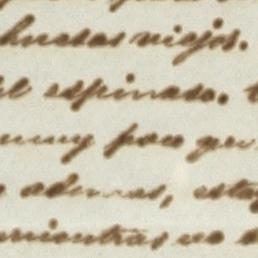 huesos viejos.
el espinaso.
muy poco
ademas, esta
mientras no